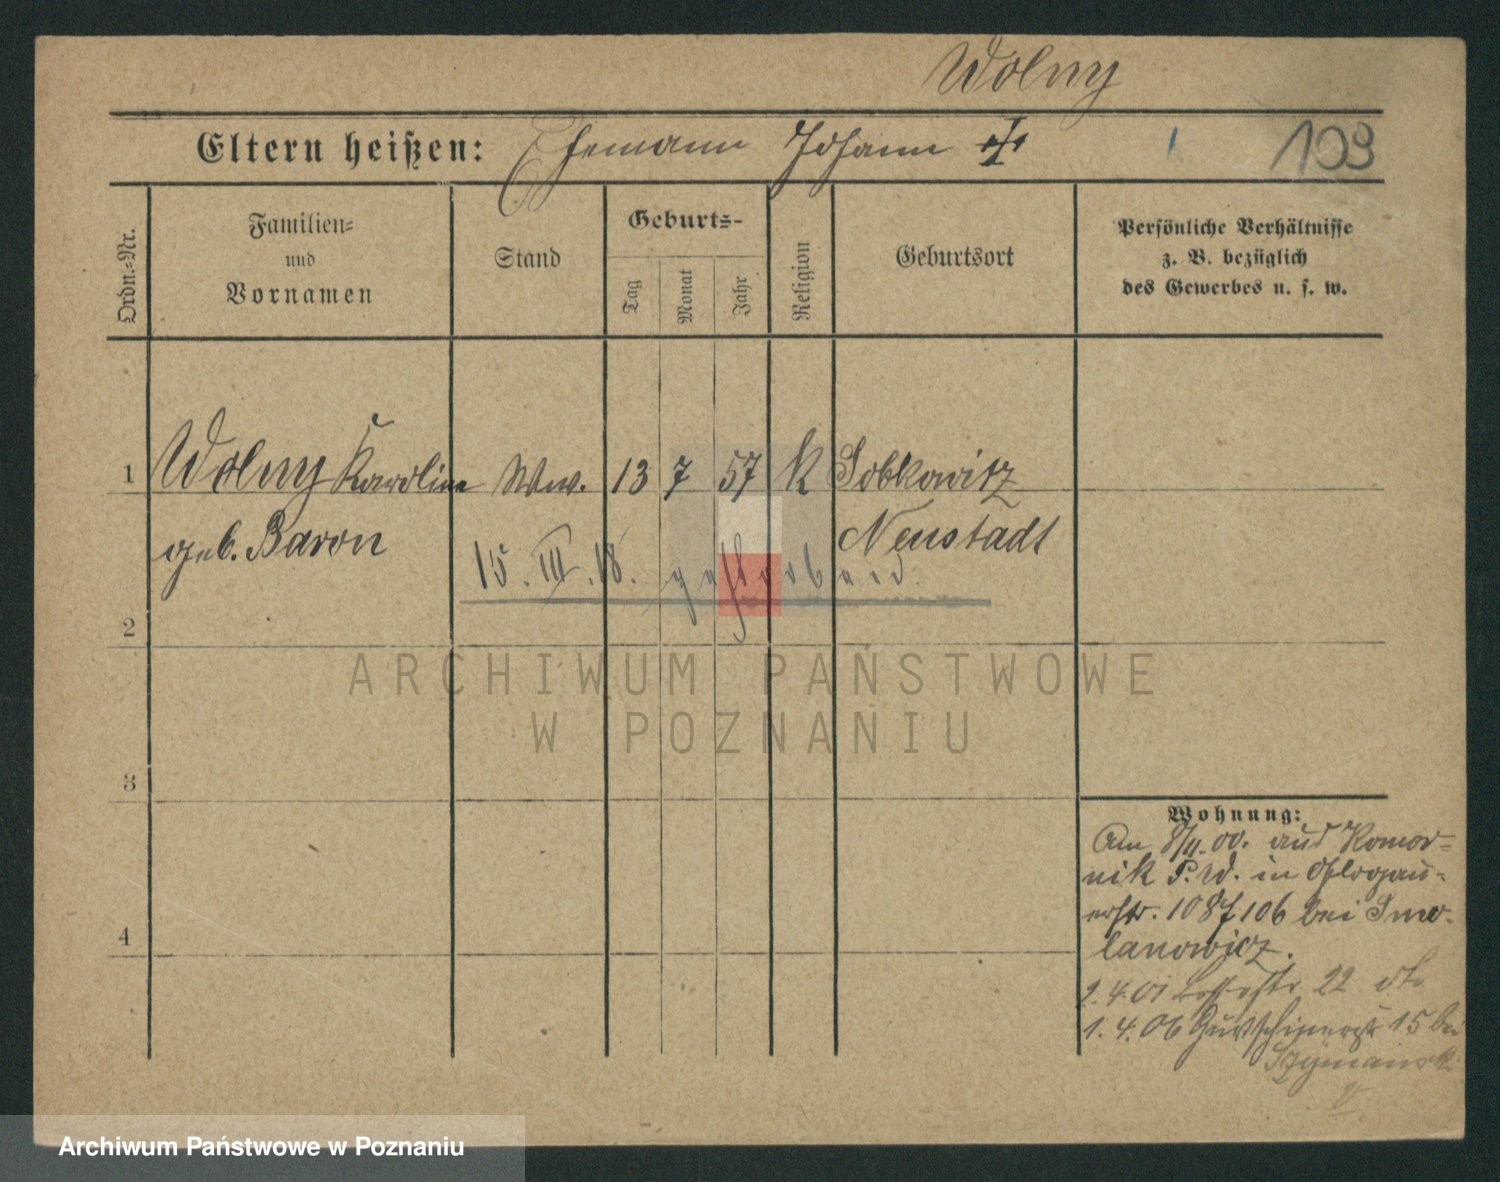 Wolny
Eltern heißen: Ehemann Johann 103
Ordn.=Nr.
Familien=
und
Vornamen
Stand
Geburts-
Tag
Monat
Jahr
Religion
Geburtsort
Persönliche Verhältnisse
z. B. bezüglich
des Gewerbes u. s. w.
1 Wolny Karoline Ww. 13 7 57 K Sobkowitz
geb. Baron Neustadt
15. III. 18. gestorben
2
3
4
Wohnung:
Am 8/11.00. aus Komor=
nik P.W. in Glogau=
erstr. 107/106 bei Smo=
lanowicz.
2.4.01 22
1.4.06 15 bei
Szymansk
ARCHIWUM PAŃSTWOWE
W POZNANIU
Archiwum Państwowe w Poznaniu